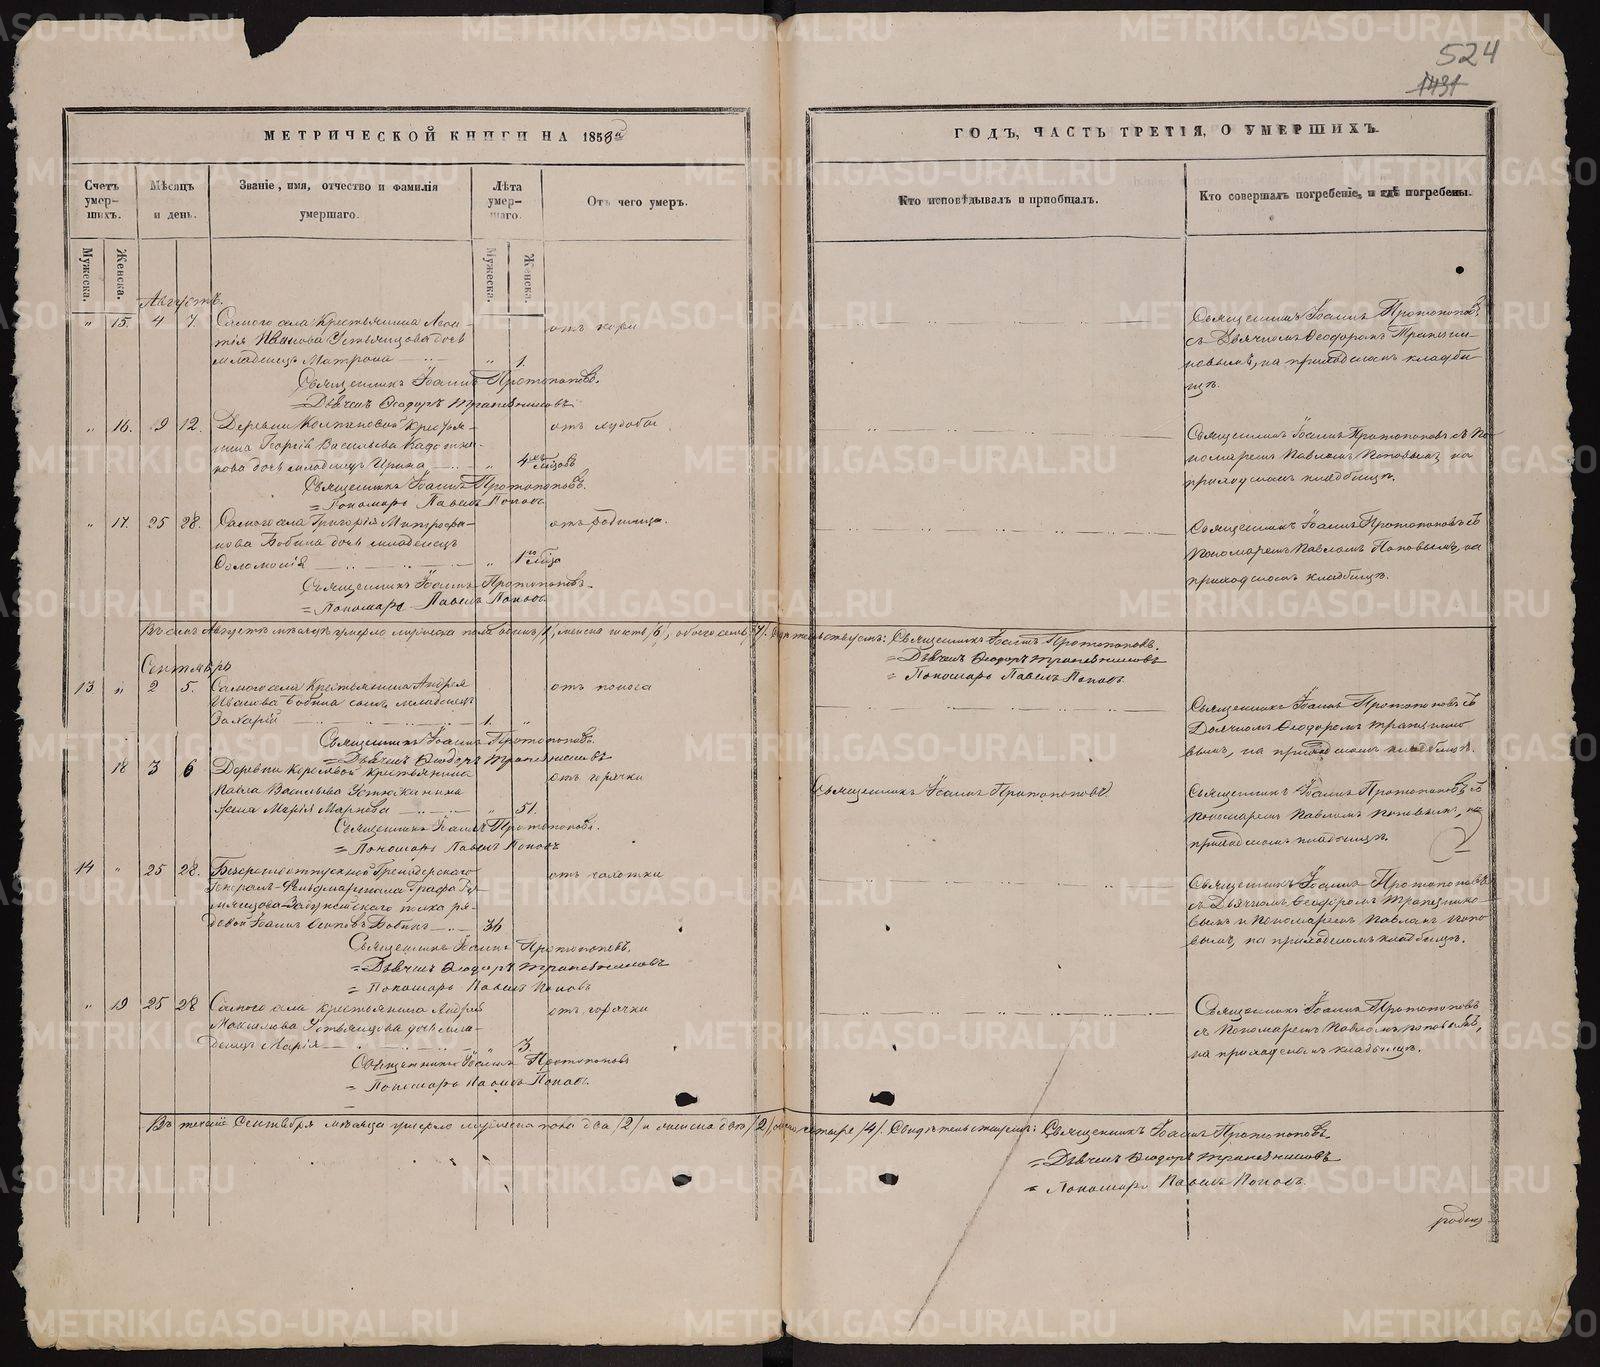 524
1431
МЕТРИЧЕСКОЙ КНИГИ НА 1858й
ГОДЪ, ЧАСТЬ ТРЕТІЯ, О УМЕРШИХЪ.
Счетъ умер-шихъ.
Мѣсяцъ и день.
Званіе, имя, отчество и фамилія умершаго.
Лѣта умер-шаго.
Отъ чего умеръ.
Кто исповѣдывалъ и пріобщалъ.
Кто совершалъ погребеніе, и гдѣ погребены.
Мужеска.
Женска.
Мужеска.
Женска.
Августъ.
" 15. 4 7. Самого села Крестьянина
Иванова Устьянцова дочь
младенецъ Матрона " 1.
отъ кори
Священникъ Іоаннъ Протопоповъ
съ Дьячкомъ Ѳеодоромъ Трапезни-
ковымъ, на приходскомъ кладби-
щѣ.
Священникъ Іоаннъ Протопоповъ.
= Дьячекъ Ѳеодоръ Трапезниковъ
" 16. 9 12. Деревни Крестья-
нина Георгія Васильева
дочь младенецъ Ирина " 4хъ мѣсяцовъ
отъ худобы
Священникъ Іоаннъ Протопоповъ съ По-
номаремъ Павломъ Поповымъ на
приходскомъ кладбищѣ.
Священникъ Іоаннъ Протопоповъ.
= Пономарь Павелъ Поповъ.
" 17. 25 28. Самого села Григорія Митрофа-
нова Бобина дочь младенецъ
Соломонія " 1го мѣсяца
отъ родимца.
Священникъ Іоаннъ Протопоповъ съ
Пономаремъ Павломъ Поповымъ, на
приходскомъ кладбищѣ.
Священникъ Іоаннъ Протопоповъ.
= Пономарь Павелъ Поповъ.
Въ семъ Августѣ мѣсяцѣ умерло мужеска пола одинъ /1/, женска шесть /6/, обоего семь /7/. Свидѣтельствуемъ: Священникъ Іоаннъ Протопоповъ.
= Дьячекъ Ѳеодоръ Трапезниковъ
= Пономарь Павелъ Поповъ.
Сентябрь
13 " 2 5. Самого села Крестьянина Андрея
Иванова Бобина сынъ младенецъ
Захарій 1. "
отъ поноса
Священникъ Іоаннъ Протопоповъ съ
Дьячкомъ Ѳеодоромъ Трапезнико-
вымъ, на приходскомъ кладбищѣ.
Священникъ Іоаннъ Протопоповъ.
= Дьячекъ Ѳеодоръ Трапезниковъ
18 3 6 Деревни крестьянина
Павла Васильева Устюжанина
жена Марія Маркова " 51.
отъ горячки
Священникъ Іоаннъ Протопоповъ
Священникъ Іоаннъ Протопоповъ съ
Пономаремъ Павломъ Поповымъ, на
приходскомъ кладбищѣ.
Священникъ Іоаннъ Протопоповъ.
= Пономарь Павелъ Поповъ
14 " 25 28. Безсрочноотпускной Гренадерскаго
Генералъ-Фельдмаршала Графа Ру-
мянцова-Задунайскаго полка ря-
довой Іоаннъ Бобинъ 36
отъ чахотки
Священникъ Іоаннъ Протопоповъ
съ Дьячкомъ Ѳеодоромъ Трапезнико-
вымъ и Пономаремъ Павломъ Попо-
вымъ, на приходскомъ кладбищѣ.
Священникъ Іоаннъ Протопоповъ.
= Дьячекъ Ѳеодоръ Трапезниковъ
= Пономарь Павелъ Поповъ
" 19 25 28 Самого села крестьянина Андрея
Максимова Устьянцова дочь мла-
денецъ Марія 3.
отъ горячки
Священникъ Іоаннъ Протопоповъ
съ Пономаремъ Павломъ Поповымъ,
на приходскомъ кладбищѣ.
Священникъ Іоаннъ Протопоповъ
= Пономарь Павелъ Поповъ.
Въ теченіе Сентября мѣсяца умерло мужеска пола два /2/ и женска двѣ /2/, обоего четыре /4/. Свидѣтельствуемъ: Священникъ Іоаннъ Протопоповъ.
= Дьячекъ Ѳеодоръ Трапезниковъ
= Пономарь Павелъ Поповъ.
METRIKI.GASO-URAL.RU